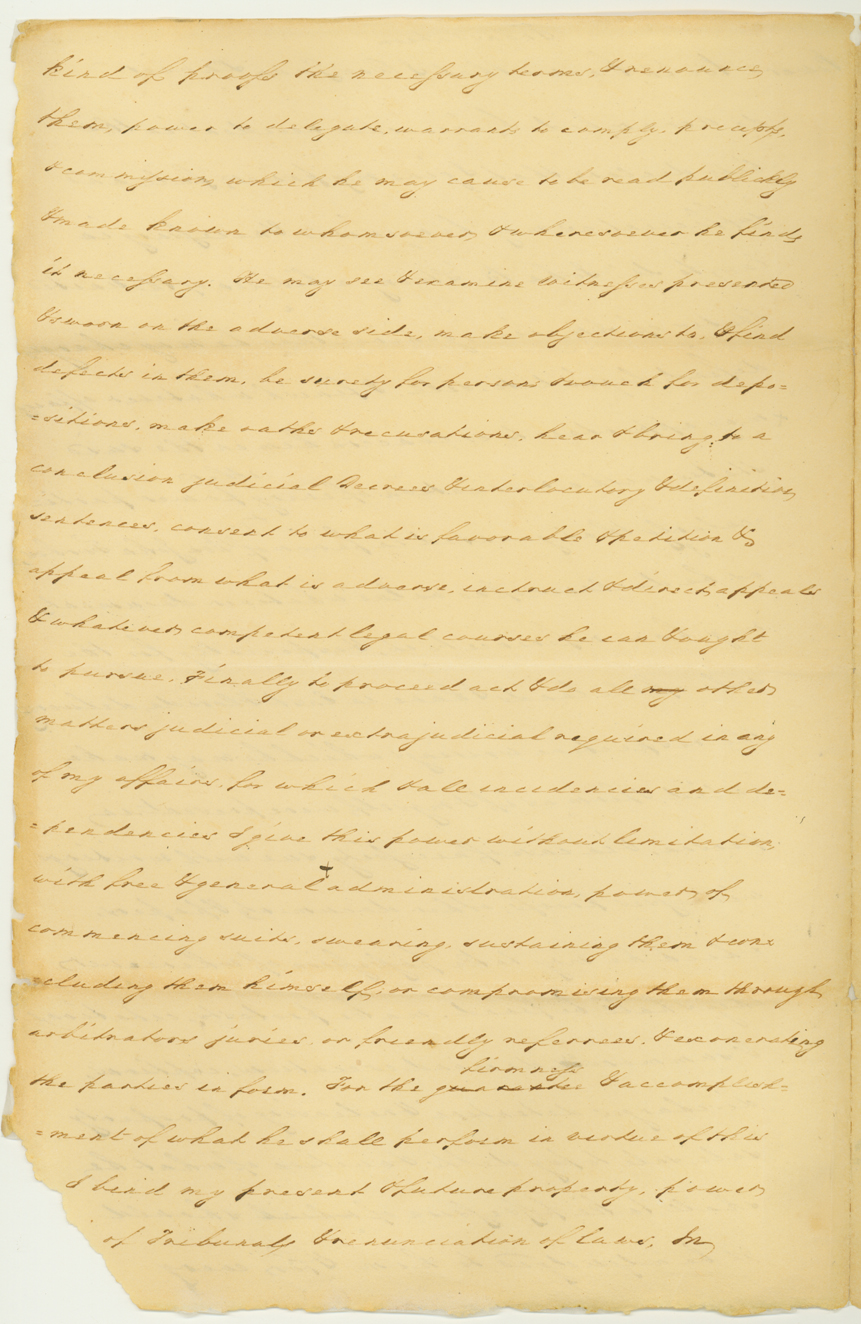 kind of proofs the necessary terms, & renounce
them, power to delegate, warrants to comply, precepts,
& commissions which he may cause to be read publickly
& made known to whomsoever, & wheresoever he finds
it necessary. He may see & examine witnesses presented
& sworn on the adverse side, make objections to, & find
defects in them, be surety for persons & vouch for depo=
=sitions, make oaths & recusations, hear & bring to a
conclusion judicial Decrees & interlocutory & definitive
sentences, consent to what is favorable & petition &
appeal from what is adverse, instruct & direct appeals
& whatever competent legal courses he can & ought
to pursue. Finally to proceed act & do all my other
matters judicial or extrajudicial required in any
of my affairs, for which & all incidencies and de=
=pendencies I give this power without limitation,
with free & general administration, power of
commencing suits, swearing, sustaining them & con=
=cluding them himself, or compromising them through
arbitrators juries, or friendly referrees, & exonerating
firmness
the parties in form. For the guarantee & accomplish=
=ment of what he shall perform in virtue of this
I bind my present & future property, power
of Tribunals & renunciation of laws. In